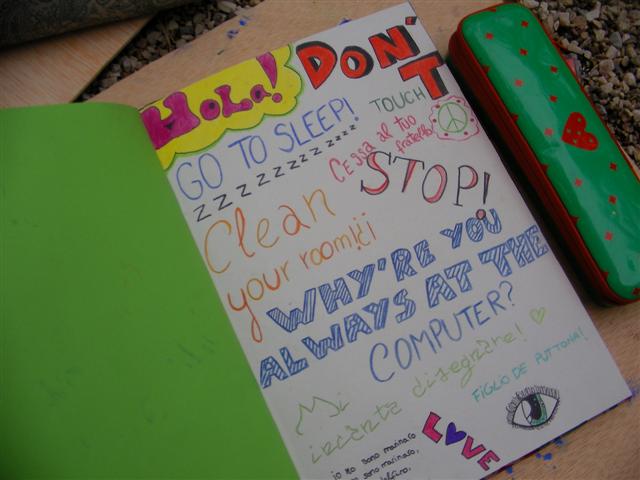 HOLA!
DON'T
TOUCH
GO TO SLEEP!
ZZZZZZZZZZZZ
Cessa al tuo
fratello
STOP!
Clean
your room!¡¡
WHY'RE YOU
ALWAYS AT THE
COMPUTER?
Mi
incanta disegnare!
FIGLIO DE PUTTONA!
LOVE
io no sono marinaro
sono marinaro,